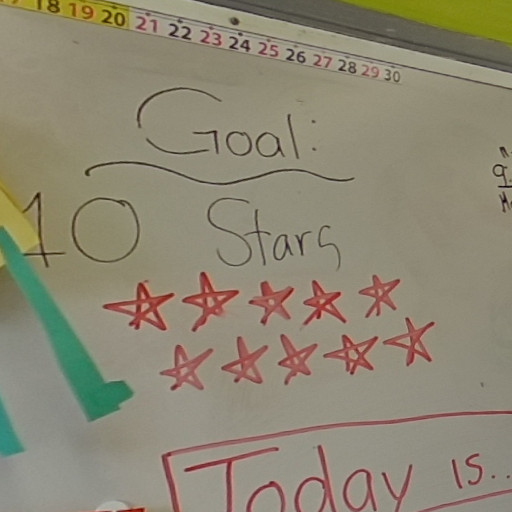 18 19 20 21 22 23 24 25 26 27 28 29 30
Goal:
10 Stars
Today is...